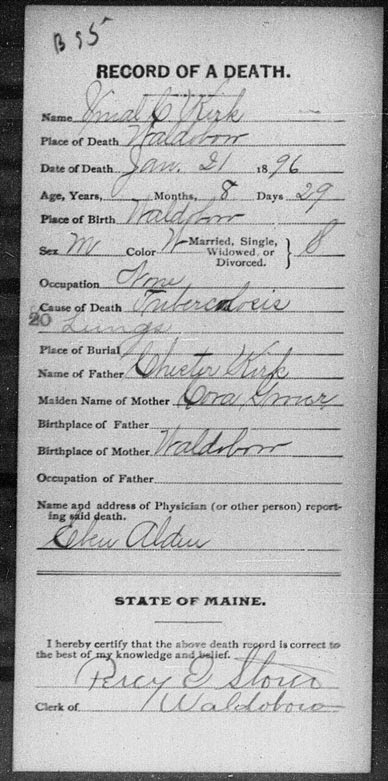 B 95
RECORD OF A DEATH.
Name C Kirk
Place of Death Waldoboro
Date of Death Jan. 21 1896
Age, Years, Months, 8 Days 29
Place of Birth Waldoboro
Sex M Color W Married, Single, Widowed, or Divorced. } S
Occupation None
Cause of Death Tuberculosis
20 Lungs
Place of Burial
Name of Father Chester Kirk
Maiden Name of Mother Cora
Birthplace of Father
Birthplace of Mother Waldoboro
Occupation of Father
Name and address of Physician (or other person) report-
ing said death.
Eben Alden
STATE OF MAINE.
I hereby certify that the above death record is correct to
the best of my knowledge and belief.
Percy E Storer
Clerk of Waldoboro